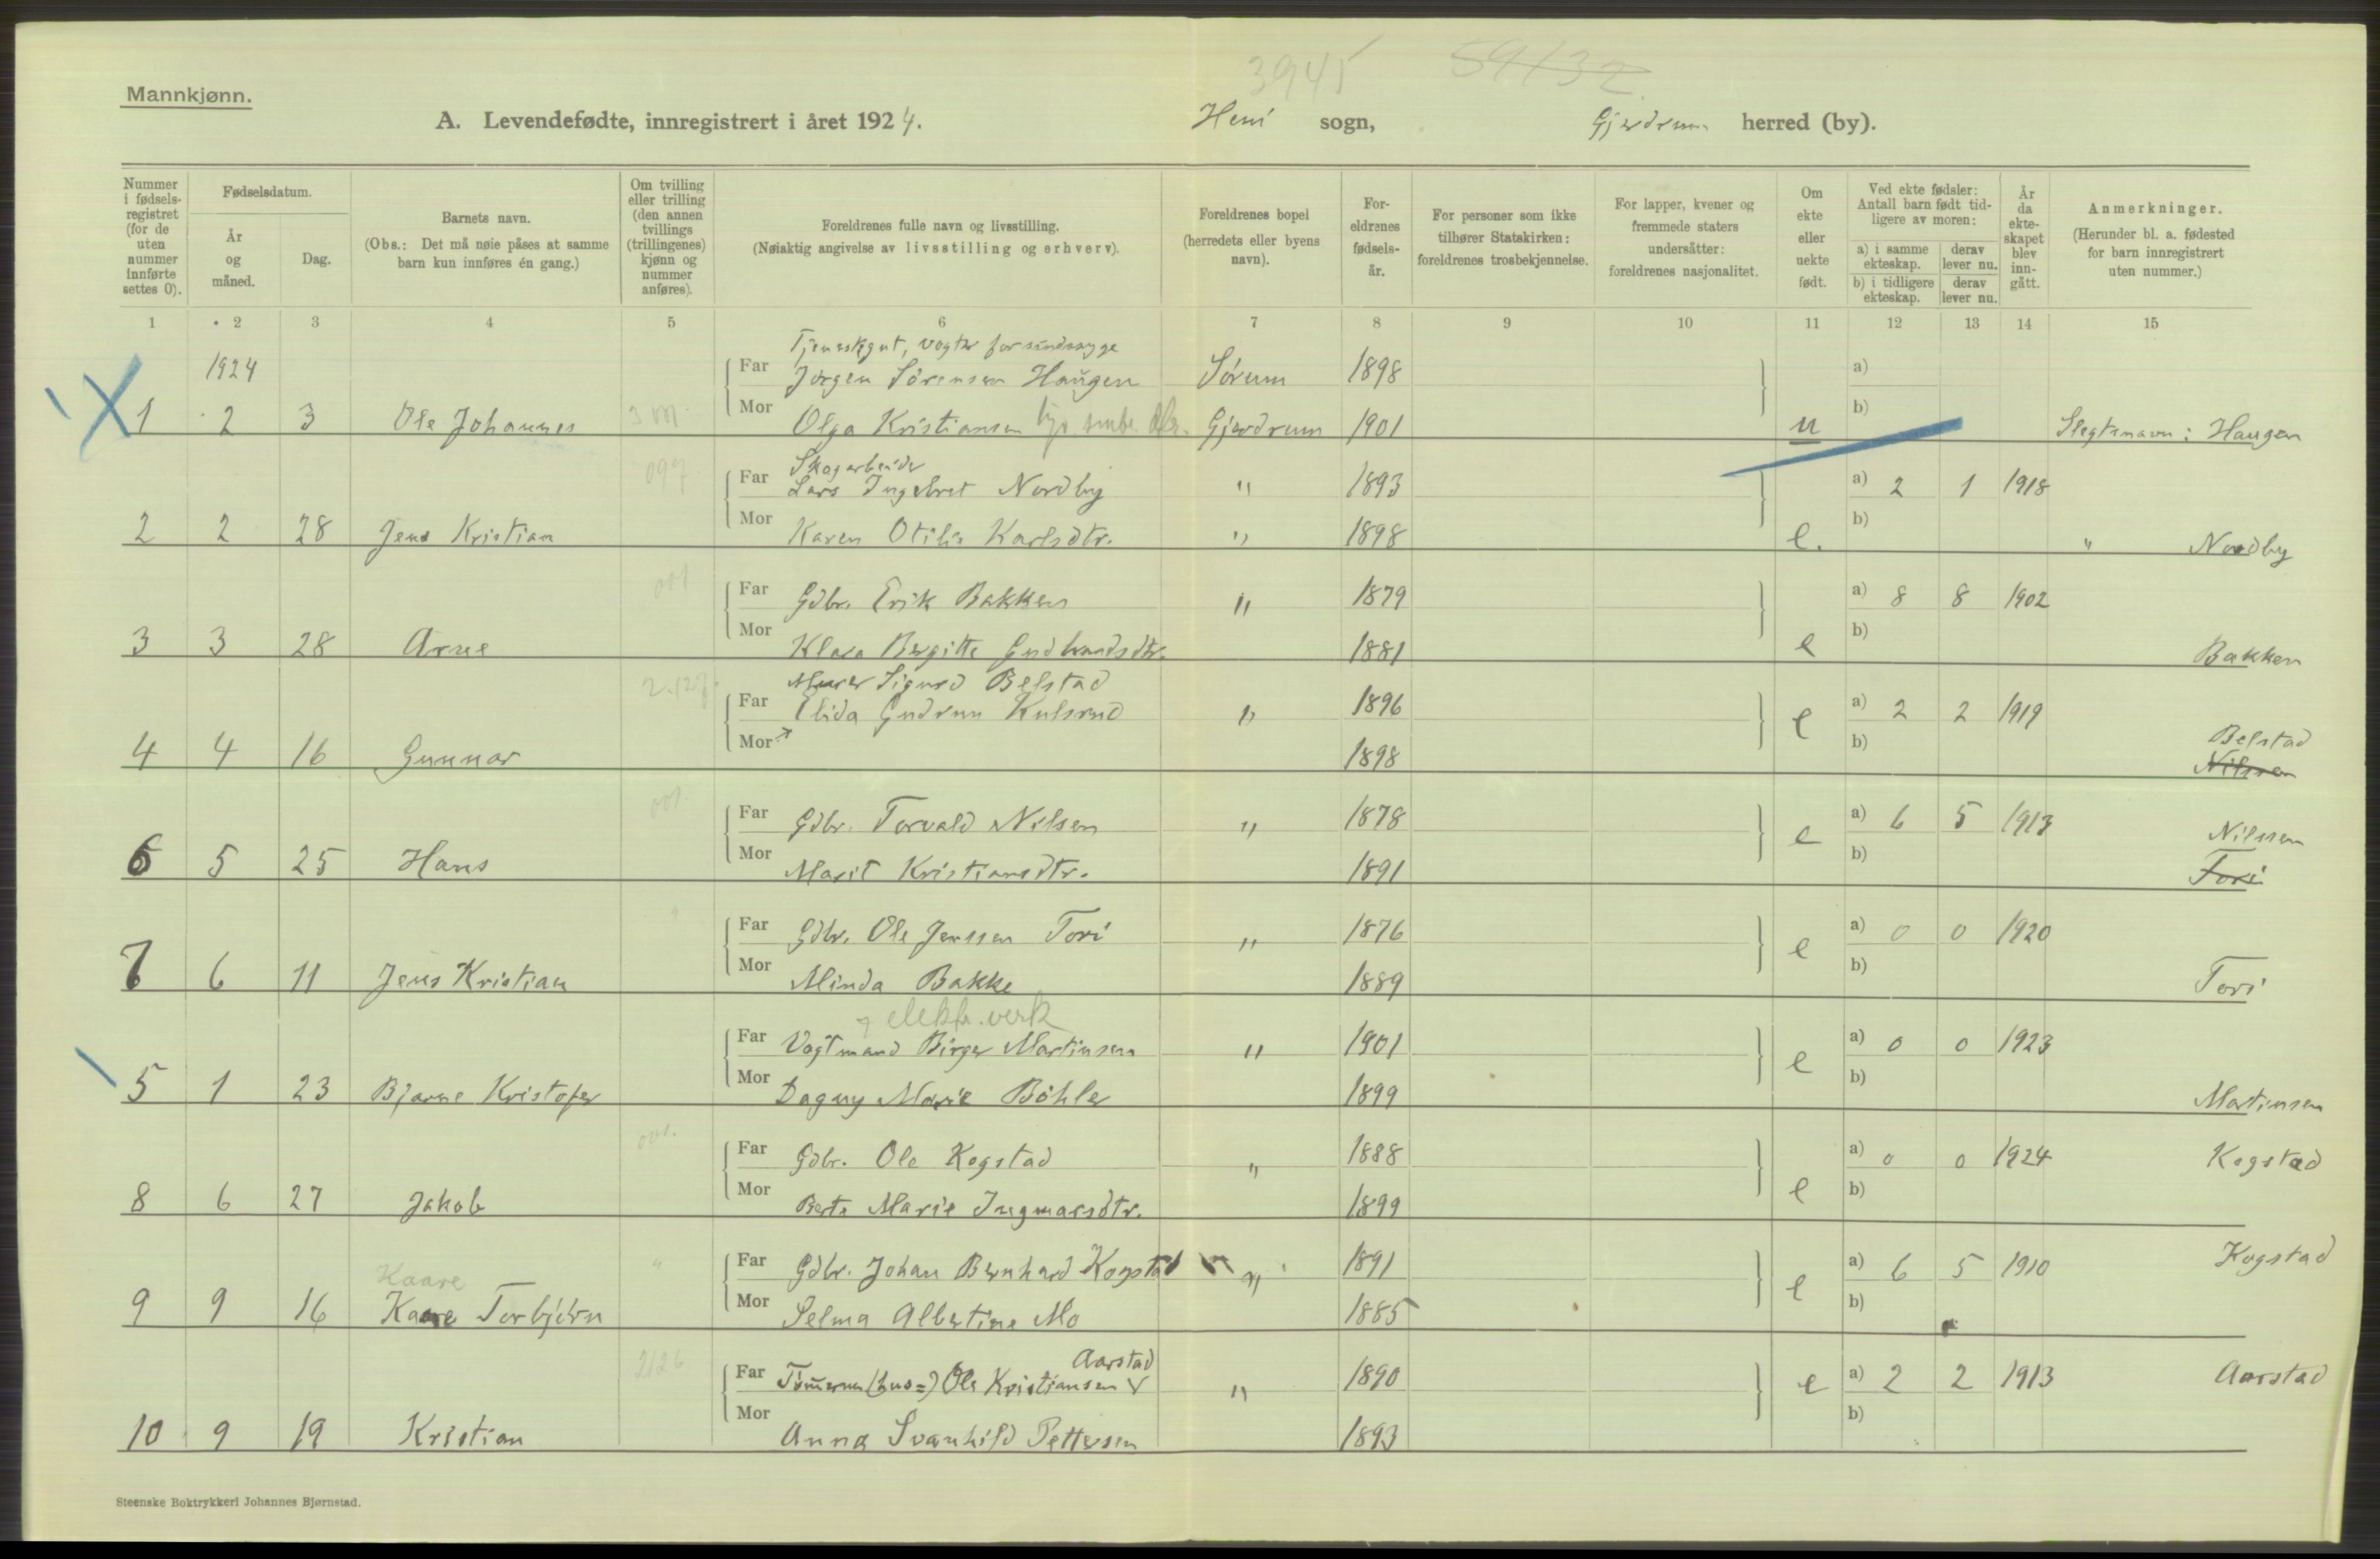 3945 59/32
Mannkjønn.
A. Levendefødte, innregistrert i året 1924. Heni sogn, Gjerdrum herred (by).
Nummer i fødsels- registret (for de uten nummer innførte settes 0).
Fødselsdatum.
År og måned.
Dag.
Barnets navn.
(Obs.: Det må nøie påses at samme barn kun innføres én gang.)
Om tvilling eller trilling (den annen tvillings (trillingenes) kjønn og nummer anføres).
Foreldrenes fulle navn og livsstilling.
(Nøiaktig angivelse av livsstilling og erhverv).
Foreldrenes bopel (herredets eller byens navn).
For- eldrenes fødsels- år.
For personer som ikke tilhører Statskirken: foreldrenes trosbekjennelse.
For lapper, kvener og fremmede staters undersåtter: foreldrenes nasjonalitet.
Om ekte eller uekte født.
Ved ekte fødsler: Antall barn født tid- ligere av moren:
a) i samme ekteskap. derav lever nu.
b) i tidligere ekteskap. derav lever nu.
År da ekte- skapet blev inn- gått.
Anmerkninger.
(Herunder bl. a. fødested for barn innregistrert uten nummer.)
1 2 3 4 5 6 7 8 9 10 11 12 13 14 15
Tjenestgut, vogter for sindssyge
1924 Far Jørgen Sörensen Haugen Sörum 1898 a)
1 2 3 Ole Johannes 3 m Mor Olga Kristiansen Gjerdrum 1901 u b) Slegtsnavn: Haugen
Skogarbeider
097 Far Lars Ingebret Nordby " 1893 a) 2 1 1918
2 2 28 Jens Kristian Mor Karen Otilie Karlsdtr. " 1898 e. b) " Nordby
001 Far Gdbr. Erik Bakken " 1879 a) 8 8 1902
3 3 28 Arne Mor Klara Bergitte Gudbrandsdtr. 1881 e b) Bakken
Murer Sigurd Belstad
Far Elida Gudrun Kulsrud " 1896 e a) 2 2 1919
4 4 16 Gunnar Mor 1898 b) Belstad
Nilssen
001. Far Gdbr. Torvald Nilsen " 1878 e a) 6 5 1913 Nilssen
6 5 25 Hans Mor Marit Kristiansdtr. 1891 b) Tori
" Far Gdbr. Ole Jenssen Tori " 1876 e a) 0 0 1920
7 6 11 Jens Kristian Mor Minda Bakke 1889 b) Tori
elektr. verk
Far Vogtmand Birger Martinsen " 1901 e a) 0 0 1923
5 1 23 Bjarne Kristofer Mor Dagny Marie Böhler 1899 b) Martinsen
001. Far Gdbr. Ole Kogstad " 1888 a) 0 0 1924 Kogstad
8 6 27 Jakob Mor Berte Marie Ingmarsdtr. 1899 e b)
Kaare " Far Gdbr. Johan Bernhard Kogstad " 1891 e a) 6 5 1910 Kogstad
9 9 16 Kaare Torbjörn Mor Selma Albertine Mo 1885 b)
Aarstad
2126 Far Tömmerm (hus=) Ole Kristiansen " 1890 e a) 2 2 1913 Aarstad
10 9 19 Kristian Mor Anna Svanhild Pettersen 1893 b)
Steenske Boktrykkeri Johannes Bjørnstad.